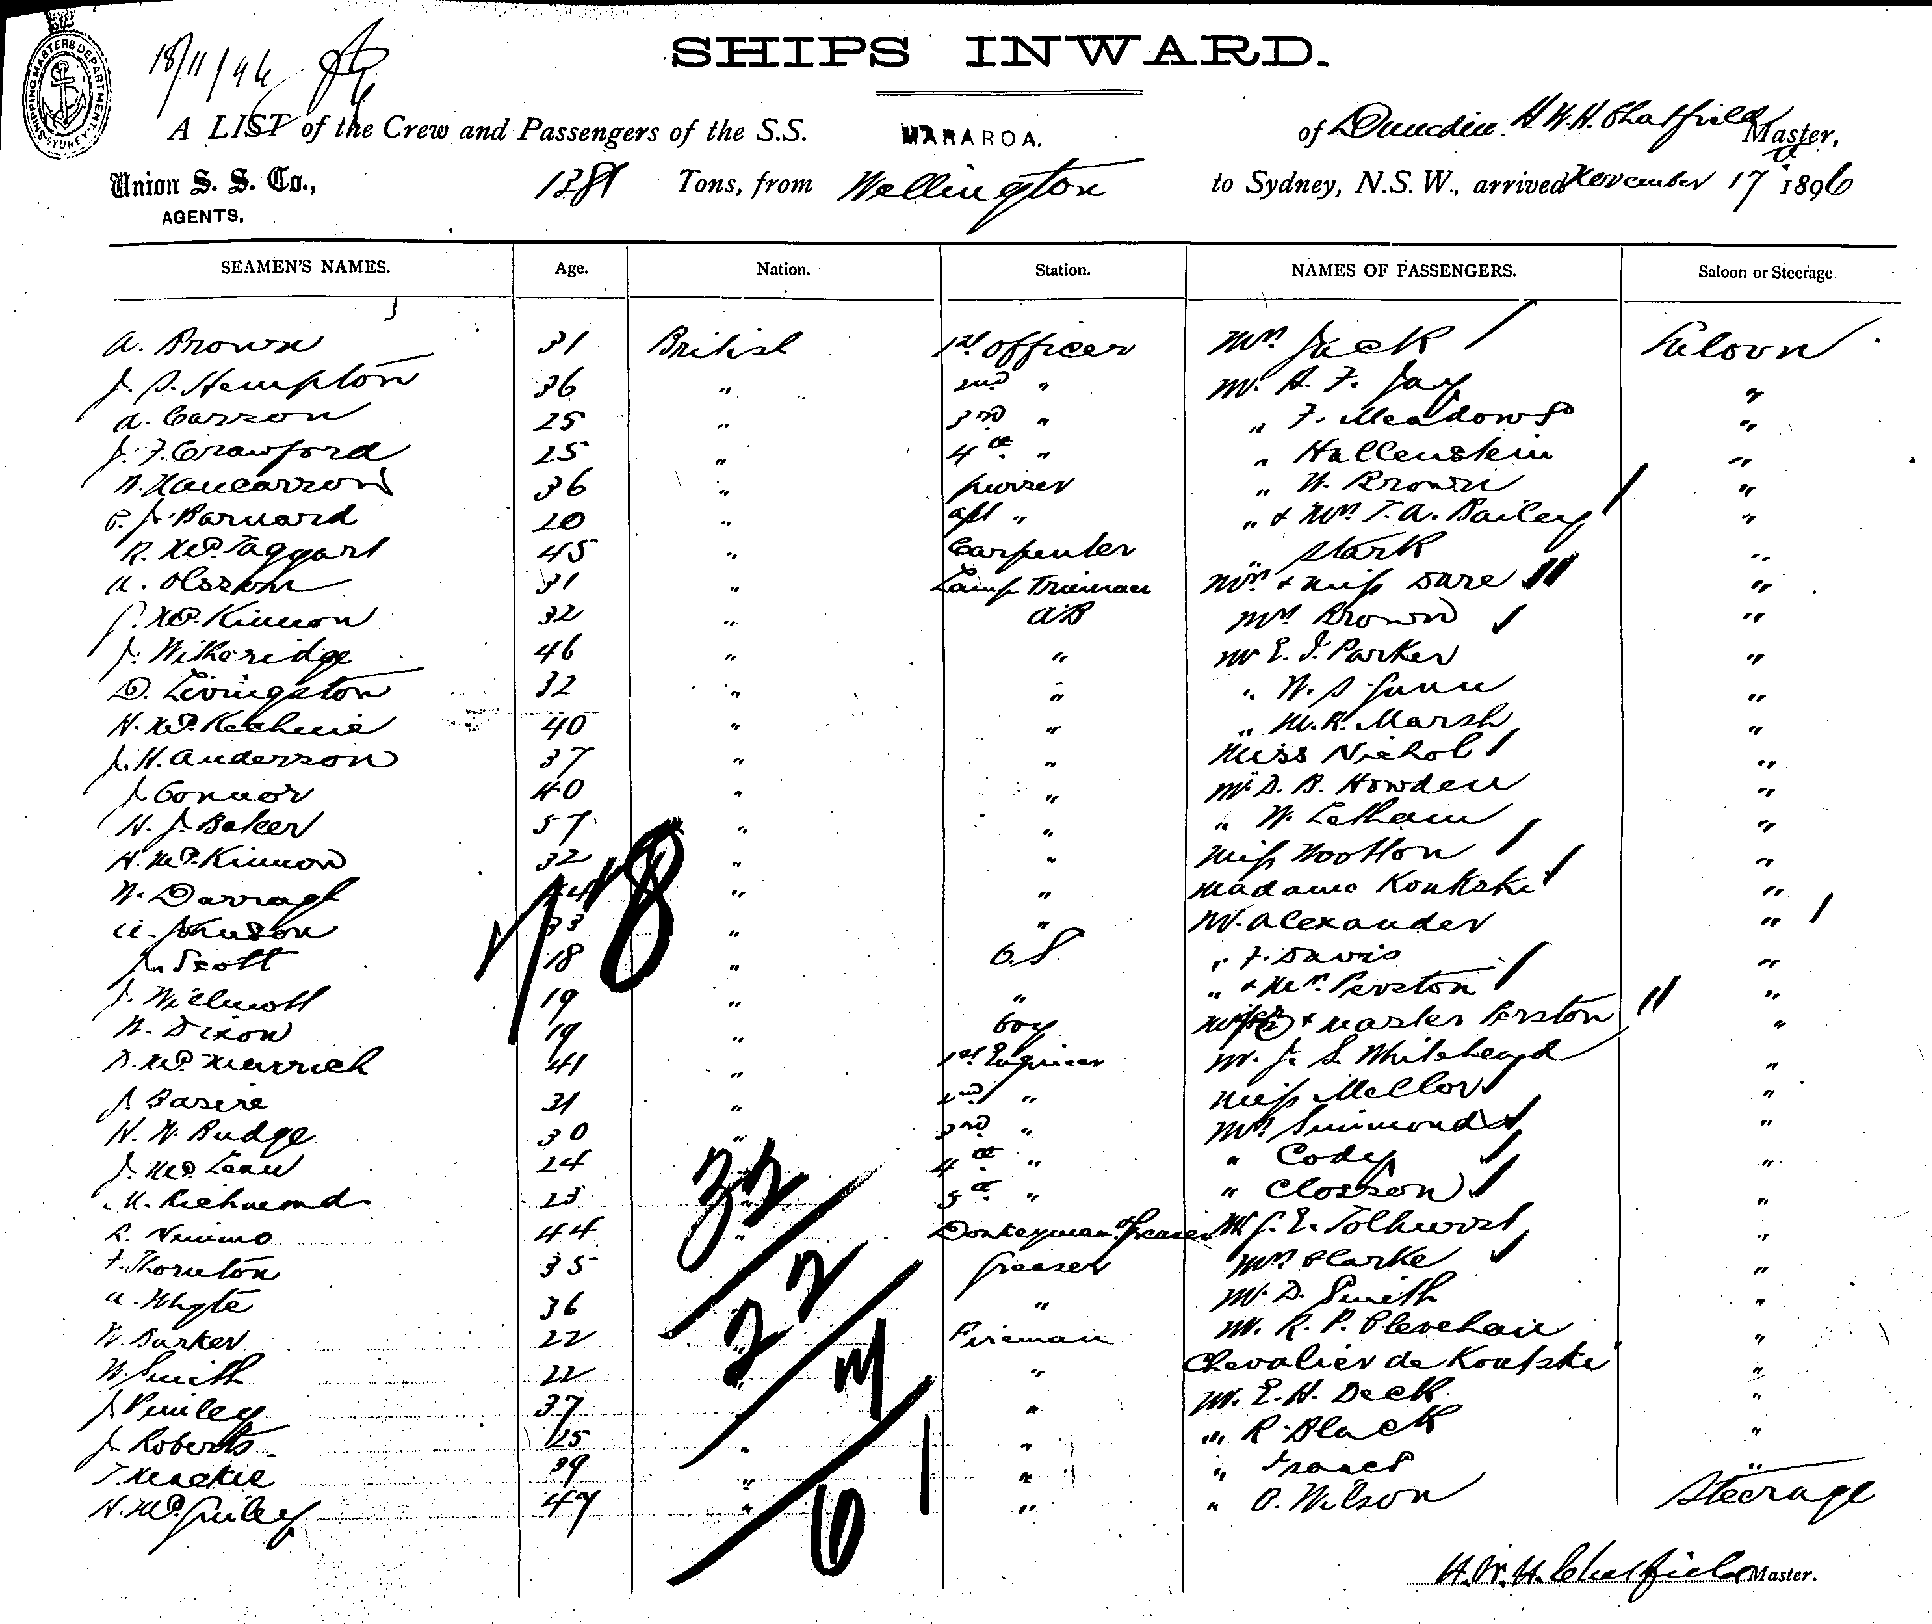 SHIPPING MASTERS DEPARTMENT SYDNEY
18/11/96
SHIPS INWARD.
A LIST of the Crew and Passengers of the S.S. MARAROA. of Dunedin. H W H. Chatfield Master,
Union S. S. Co., AGENTS. 1381 Tons, from Wellington to Sydney, N.S.W., arrived November 17 1896
SEAMEN'S NAMES. Age. Nation. Station. NAMES OF PASSENGERS. Saloon or Steerage
A. Brown 31 British 1st officer Mrs Jack Saloon
J. S. Hempton 36 " 2nd " Mr. H. F. Jay "
A. Carson 25 " 3rd " " F. Meadows "
J. F. Crawford 25 " 4th " " Hallenstein "
36 " purser " W. Brown "
P. J. Barnard 20 " asst " " & Mrs T. A. Bailey "
R. McTaggart 45 " Carpenter " Stark "
A. Olsson 31 " Lamp Trimman Mrs & Miss Dare "
McKinnon 32 " AB Mrs Brown "
J. Witheridge 46 " " Mr E. J. Parker "
D. Livingston 32 " " " W. S Gunn "
H. McKechnie 40 " " " M. R. Marsh "
J. H. Anderson 37 " " Miss Nichol "
J. Connor 40 " " Mr D. B. Howden "
H. J. Baker 57 " " " W. Letham "
H. McKinnon 32 " " Miss Wootton "
W. Darragh " " Madame Kontski "
A. Johnson 33 " " Mr. Alexander "
J. Scott 18 " O.S " F. Davis "
J. Willmott 19 " " " & Mrs. Perston "
W. Dixon 19 " boy & Master Perston "
D. McMerrich 41 " 1st Engineer Mr. J. S. Whitehead "
J. Basire 31 " 2nd " Miss Mellor "
H. W. Rudge 30 " 3rd " Mrs Simmonds "
J. McLean 24 " 4th " " Cody "
M. Richmond 23 5th " " Closson "
R. Nimmo 44 " Donkeyman & Greaser Mr J. E. Tolhurst "
F. Thornton 35 Greaser Mrs Clarke "
A. Whyte 36 " Mr. D. Smith "
W. Barker 22 Fireman Mr. R. P. Clevehan "
W Smith 22 " Chevalier de Kontski "
J Pinley 37 " Mr. E. H. Deck "
J Roberts 25 " " " R. Black "
T. Mackie 39 " " " "
H. McGinley 47 " " " O. Wilson Steerage
78
32
22
61
H. W. H. Chatfield Master.